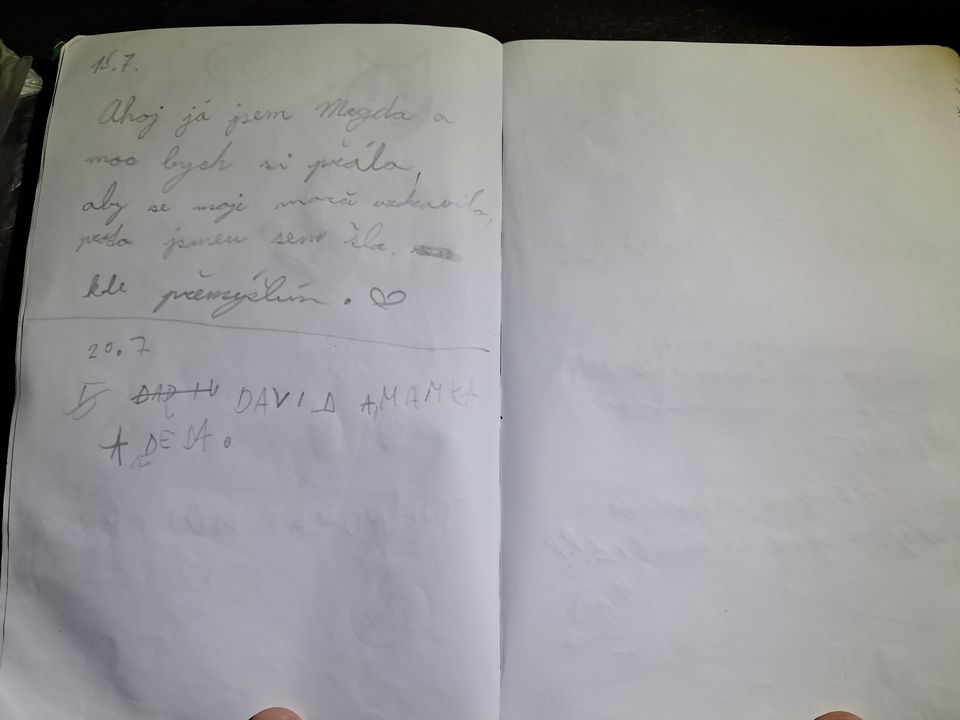 18.7.
Ahoj já jsem Magda a
moc bych si přála,
aby se moje morč uzdravila,
proto jsmeu sem šla,
kde přemýšlím. ♡
20.7
DAVID A MAMKA
A DEDA.